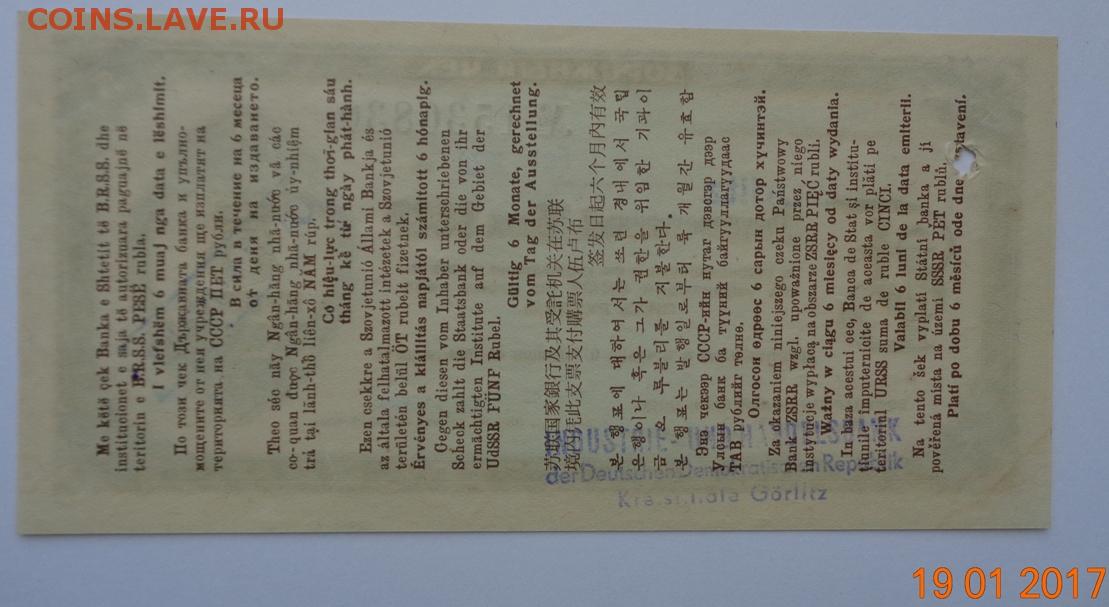 COINS.LAVE.RU
Me këtë çek Banka e Shtetit të B.R.S.S. dhe
institucionet e saja të autorizuara paguajnë në
teritorin e B.R.S.S. PESË rubla.
I vlefshëm 6 muaj nga data e lëshimit.
По този чек Държавната банка и упълно-
мощените от нея учреждения ще изплатят на
територията на СССР ПЕТ рубли.
В сила в течение на 6 месеца
от деня на издаването.
Theo séc này Ngân-hàng nhà-nước và các
cơ-quan được Ngân-hàng nhà-nước ủy-nhiệm
trả tại lãnh-thổ liên-xô NĂM rúp.
Có hiệu-lực trong thời-gian sáu
tháng kể từ ngày phát-hành.
Ezen csekkre a Szovjetunió Állami Bankja és
az általa felhatalmazott intézetek a Szovjetunió
területén belül ÖT rubelt fizetnek.
Érvényes a kiállítás napjától számított 6 hónapig.
Gegen diesen vom Inhaber unterschriebenen
Scheck zahlt die Staatsbank oder die von ihr
ermächtigten Institute auf dem Gebiet der
UdSSR FÜNF Rubel.
Gültig 6 Monate, gerechnet
vom Tag der Ausstellung.
苏联国家銀行及其受託机关在苏联
境内凭此支票支付購票人伍卢布
签发日起六个月內有效
본 행표에 대하여서는 쏘련 경내에서 국립
은행이나 혹은 그가 권한을 위임한 기과이
금 오 루블리를 지불한다.
본 행표는 발행일로부터 륙 개월간 유효함
Энэ чекээр СССР-ийн нутаг дэвсгэр дээр
Улсын банк ба түүний байгууллагуудаас
ТАВ рублийг төлнө.
Олгосон өдрөөс 6 сарын дотор хүчинтэй.
Za okazaniem niniejszego czeku Państwowy
Bank ZSRR wzgl. upoważnione przez niego
instytucje wypłacą na obszarze ZSRR PIĘĆ rubli.
Ważny w ciągu 6 miesięcy od daty wydania.
In baza acestui cec, Banca de Stat și institu-
țiunile împuternicite de aceasta vor plăti pe
teritoriul URSS suma de ruble CINCI.
Valabil 6 luni de la data emiterii.
Na tento šek vyplatí Státní banka a jí
pověřená místa na území SSSR PĚT rublů.
Platí po dobu 6 měsíců ode dne
INDUSTRIE- UND HANDELSBANK
der Deutschen Demokratischen Republik
Kreisfiliale Görlitz
19 01 2017